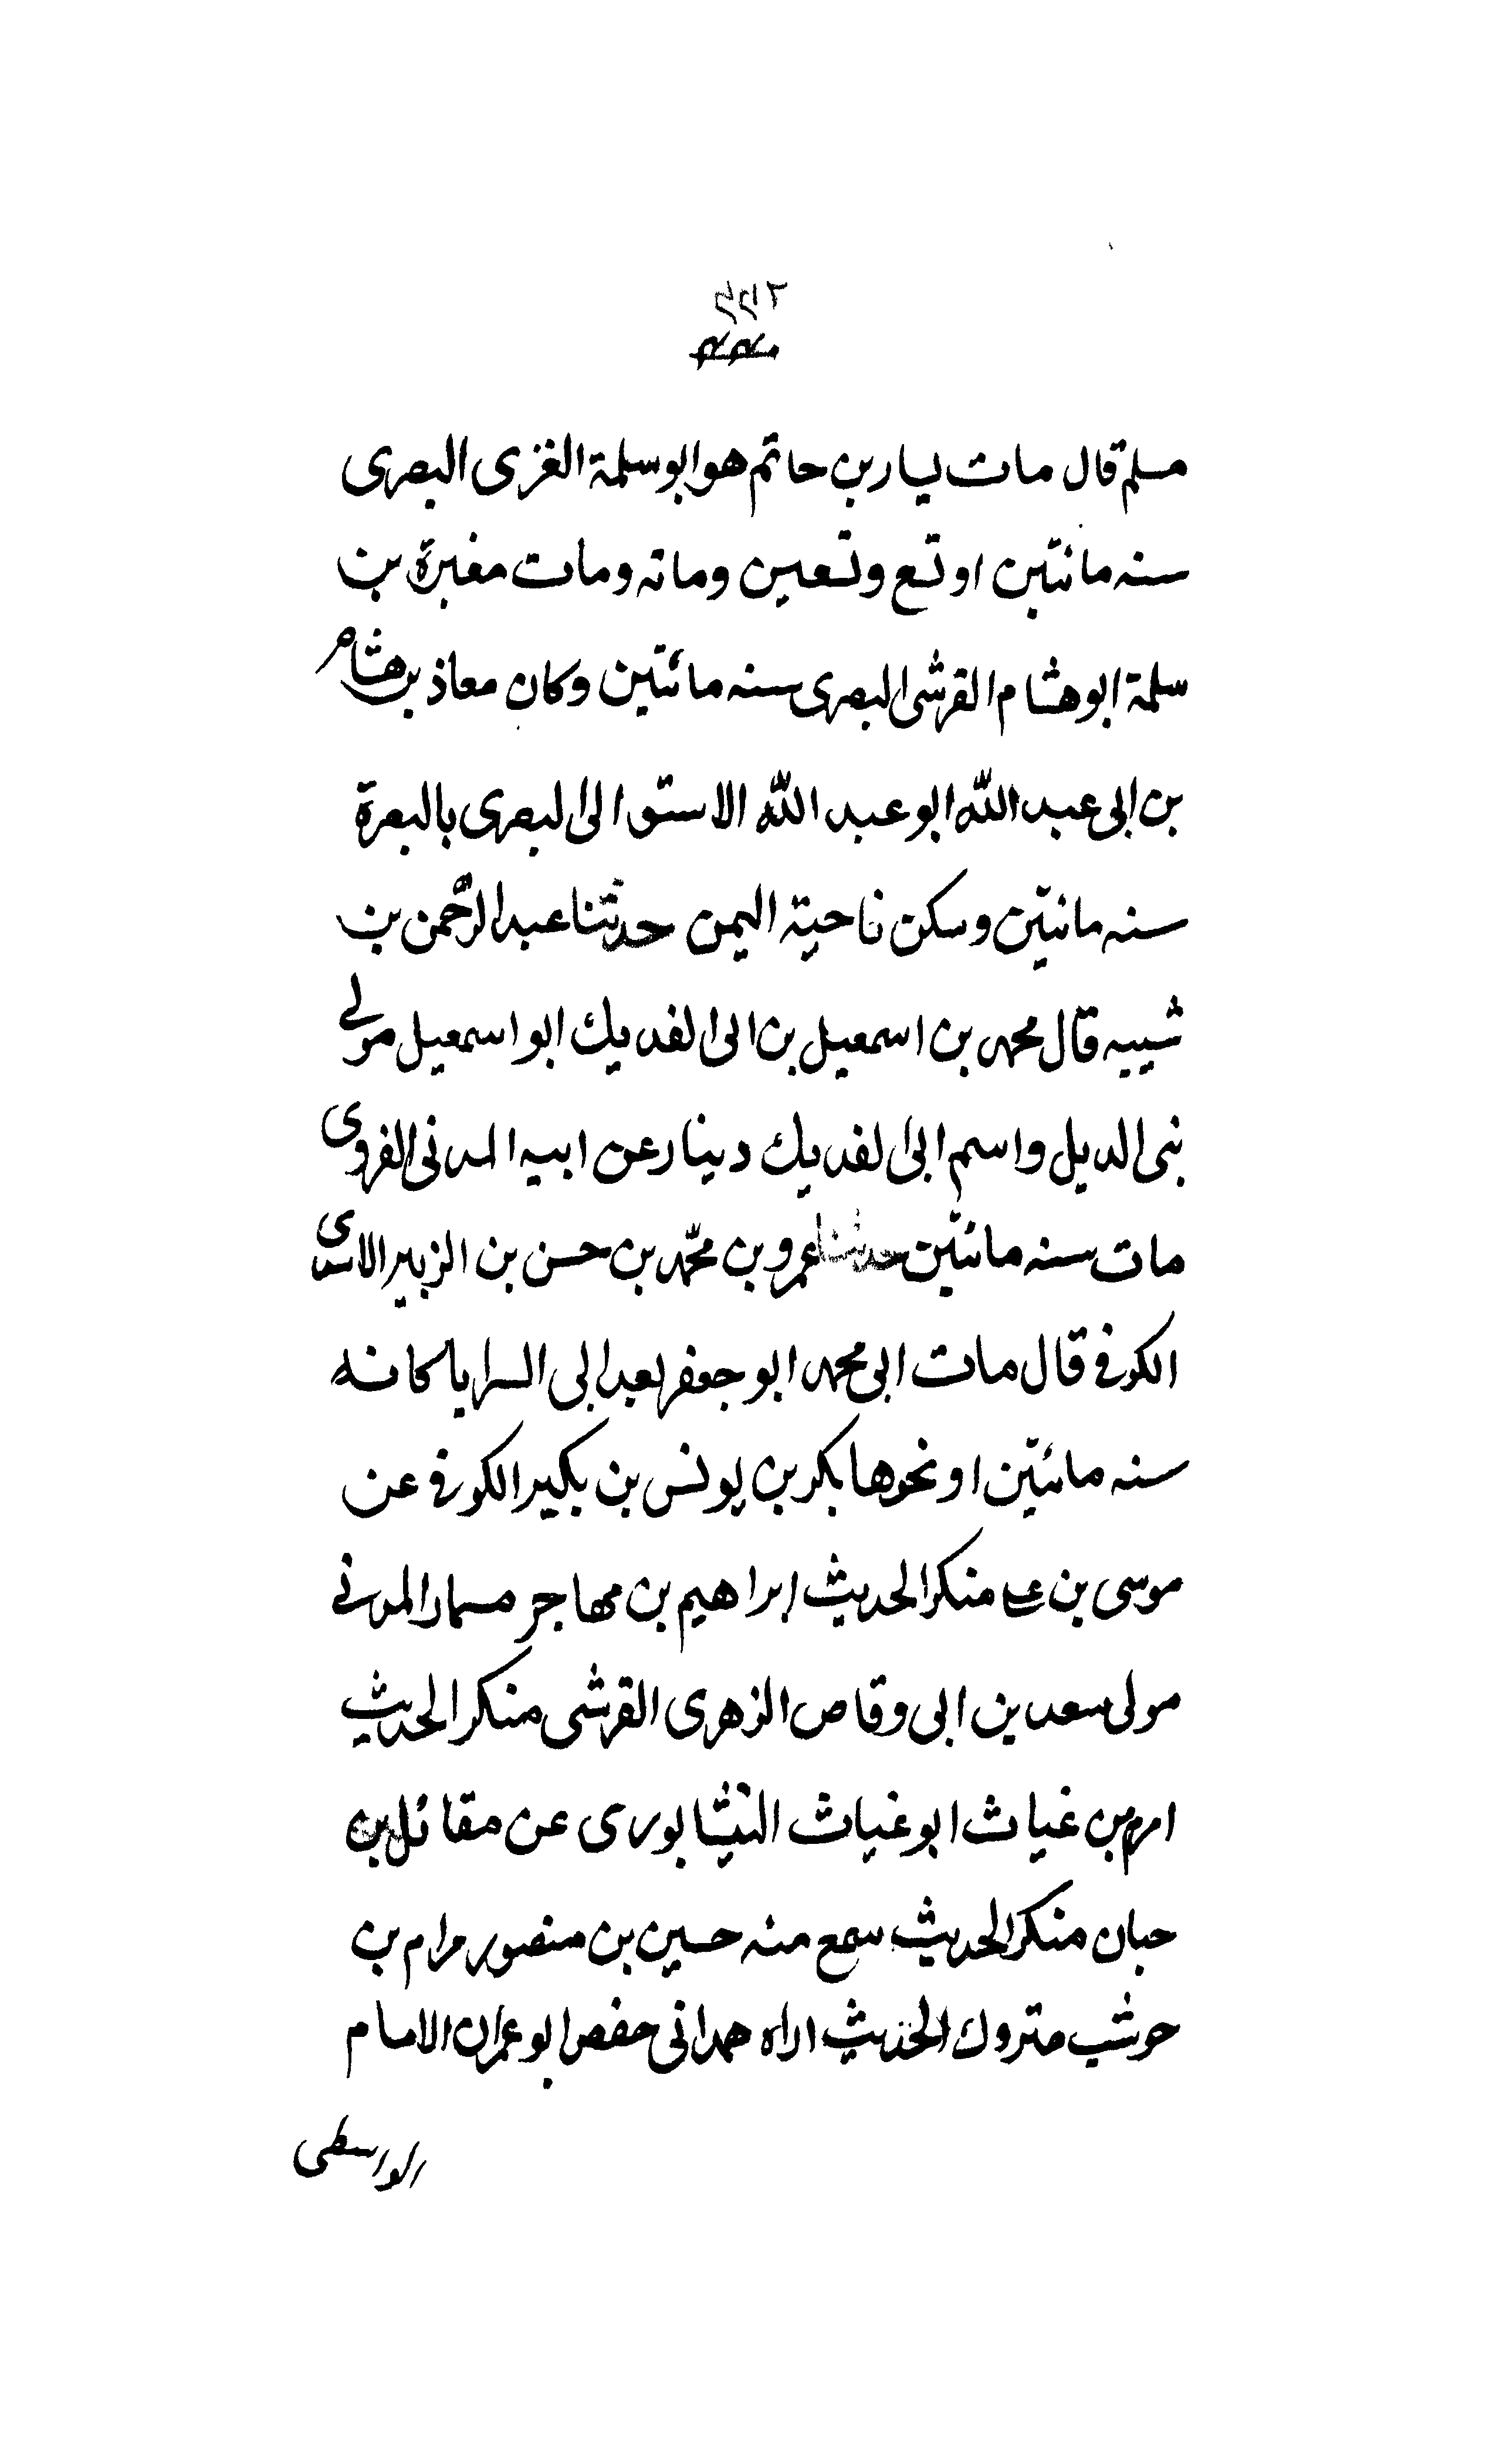 مسلم قال مات يسار بن حاتم هو ابو سلمة الغزى البصرى
سنه مائتين او تسع وتسعين ومائه ومات مغيرة بن
سلمة ابو هشام القرشى البصرى سنه مائتين وكان معاذ بن هشام
بن ابى عبد الله ابو عبد الله الاستوالى البصرى بالبصرة
سنه مائتين وسكن ناحية اليمن حدثنا عبد الرحمن بن
شيبه قال محمد بن اسمعيل بن ابى الفديك ابو اسمعيل مولى
بنى الديل واسم ابى الفديك دينار عن ابيه المدنى الفروى
مات سنه مائتين حدثنا عمرو بن محمد بن حسن بن الزبير الاسدى
الكوفى قال مات ابى محمد ابو جعفر بعد ابى السرايا كانه
سنه مائتين او نحوها بكر بن يونس بن بكير الكوفى عن
موسى بن على منكر الحديث ابراهيم بن مهاجر مسمار المدنى
مولى سعد بن ابى وقاص الزهرى القرشى منكر الحديث
اصرم بن غياث ابو غياث النيشابورى عن مقاتل بن
حبان منكر الحديث سمع منه حسين بن منصور مرام بن
حوشب متروك الحديث اراه همدانى حفص ابو عمران الامام
الواسطى